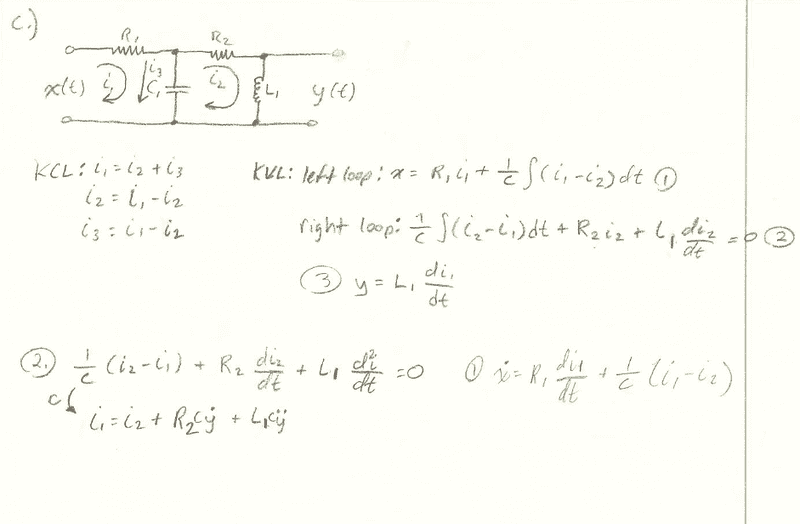 C.)
R₁ R₂
x(t) i₁ i₃ C₁ i₂ L₁ y(t)
KCL: i₁ = i₂ + i₃ KVL: left loop: x = R₁i₁ + 1/C ∫(i₁-i₂)dt ①
i₂ = i₁ - i₂
i₃ = i₁ - i₂ right loop: 1/C ∫(i₂-i₁)dt + R₂i₂ + L₁ di₂/dt = 0 ②
③ y = L₁ di₁/dt
②. 1/C (i₂-i₁) + R₂ di₂/dt + L₁ d²i/dt = 0 ① ẋ = R₁ di₁/dt + 1/C (i₁-i₂)
i₁ = i₂ + R₂Cẏ + L₁Cÿ